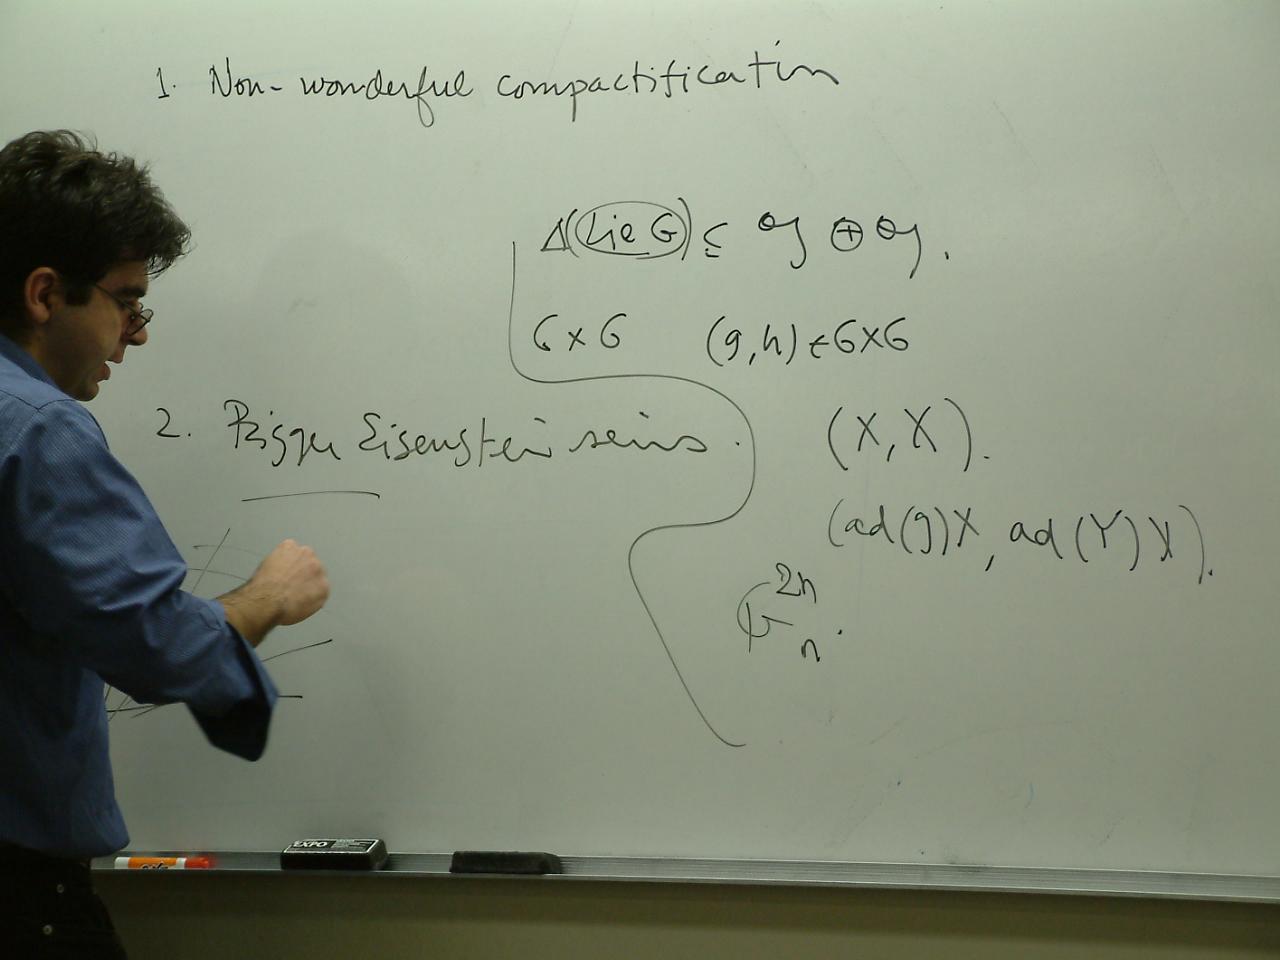 1. Non-wonderful compactification
Δ(Lie G) ⊆ 𝔤 ⊕ 𝔤.
G × G (g, h) ∈ G×G
2. Bigger Eisenstein series.
(X, X).
(ad(g)X, ad(Y)X).
2n
n.
EXPO